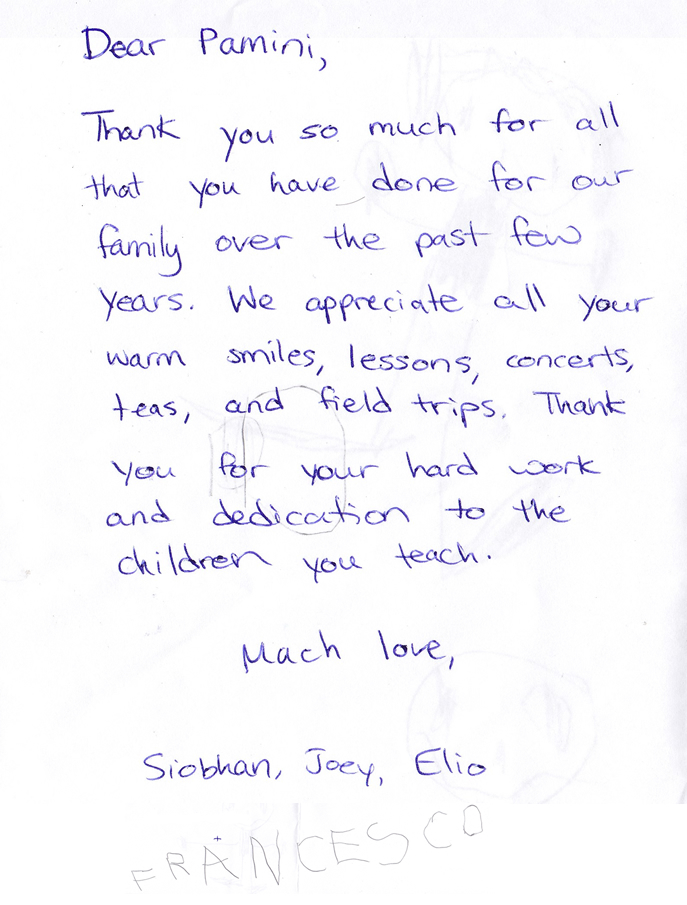 Dear Pamini,
Thank you so much for all
that you have done for our
family over the past few
years. We appreciate all your
warm smiles, lessons, concerts,
teas, and field trips. Thank
you for your hard work
and dedication to the
children you teach.
Mach love,
Siobhan, Joey, Elio
FRANCESCO